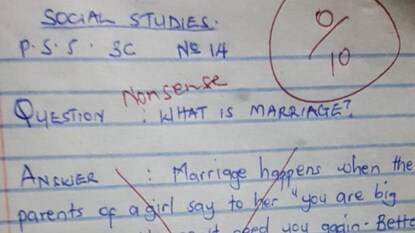 SOCIAL STUDIES.
P.S.S. 3C No 14
0/10
Nonsense
QUESTION : WHAT IS MARRIAGE?
ANSWER : Marriage happens when the
parents of a girl say to her "you are big
need you again. Bette